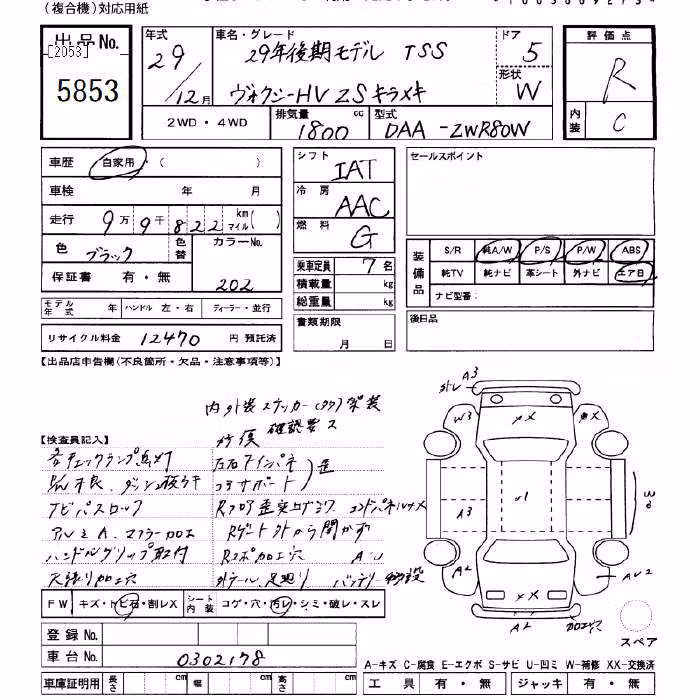 (複合機)対応用紙
出品No.
[2053]
5853
年式
29
12月
車名・グレード
29年後期モデル TSS
ヴォクシーHV ZS キラメキ
ドア
5
形状
W
2WD・4WD
排気量
1800
cc
型式
DAA-ZWR80W
評価点
R
内装
C
車歴
自家用・( )
車検 年 月
走行 9万9千822 km マイル( )
色 ブラック
色替
カラーNo.
202
保証書 有・無
モデル年式 年 ハンドル 左・右 ディーラー・並行
リサイクル料金 12470 円 預託済
シフト
IAT
冷房
AAC
燃料
G
乗車定員 7 名
積載量 kg
総重量 kg
書類期限
月 日
セールスポイント
装備品
S/R 純A/W P/S P/W ABS
純TV 純ナビ 革シート 外ナビ エアB
ナビ型番:
後日品
【出品店申告欄(不良箇所・欠品・注意事項等)】
内外装ステッカー(タグ)架装
修復 確認要ス
【検査員記入】
各チェックランプ点灯
アルミA、マフラー加工
ハンドルグリップ取付
天張り加工穴
左右Aインパネ
コアサポート
歪
Rフロア歪突上げ
コンドパネルメ
Rゲート外から開かず
バッテリー移設
FW キズ・トビ石・割レX
シート内装 コゲ・穴・汚レ・シミ・破レ・スレ
登録No.
車台No. 0302178
車庫証明用 長さ cm 幅 cm 高さ cm
外レ A3
W3
A3
A2
AU2
加工穴
スペア
A-キズ C-腐食 E-エクボ S-サビ U-凹ミ W-補修 XX-交換済
工具 有・無 ジャッキ 有・無